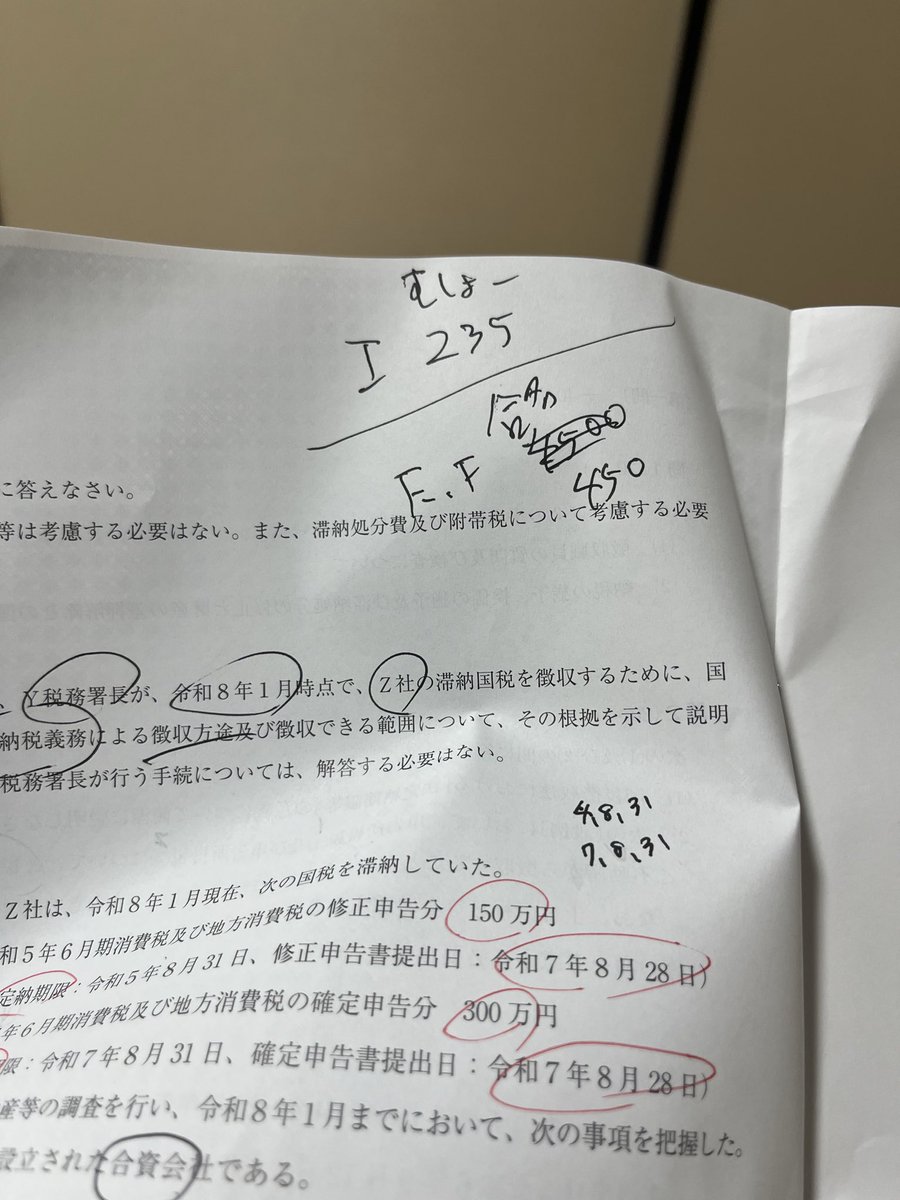 むしょー
I 235
合AD
E.F
450
に答えなさい。
等は考慮する必要はない。また、滞納処分費及び附帯税について考慮する必要
Y税務署長が、令和8年1月時点で、Z社の滞納国税を徴収するために、国
納税義務による徴収方途及び徴収できる範囲について、その根拠を示して説明
税務署長が行う手続については、解答する必要はない。
4,8,31
7,8,31
Z社は、令和8年1月現在、次の国税を滞納していた。
和5年6月期消費税及び地方消費税の修正申告分 150万円
定納期限:令和5年8月31日、修正申告書提出日:令和7年8月28日)
年6月期消費税及び地方消費税の確定申告分 300万円
限:令和7年8月31日、確定申告書提出日:令和7年8月28日)
産等の調査を行い、令和8年1月までにおいて、次の事項を把握した。
設立された合資会社である。